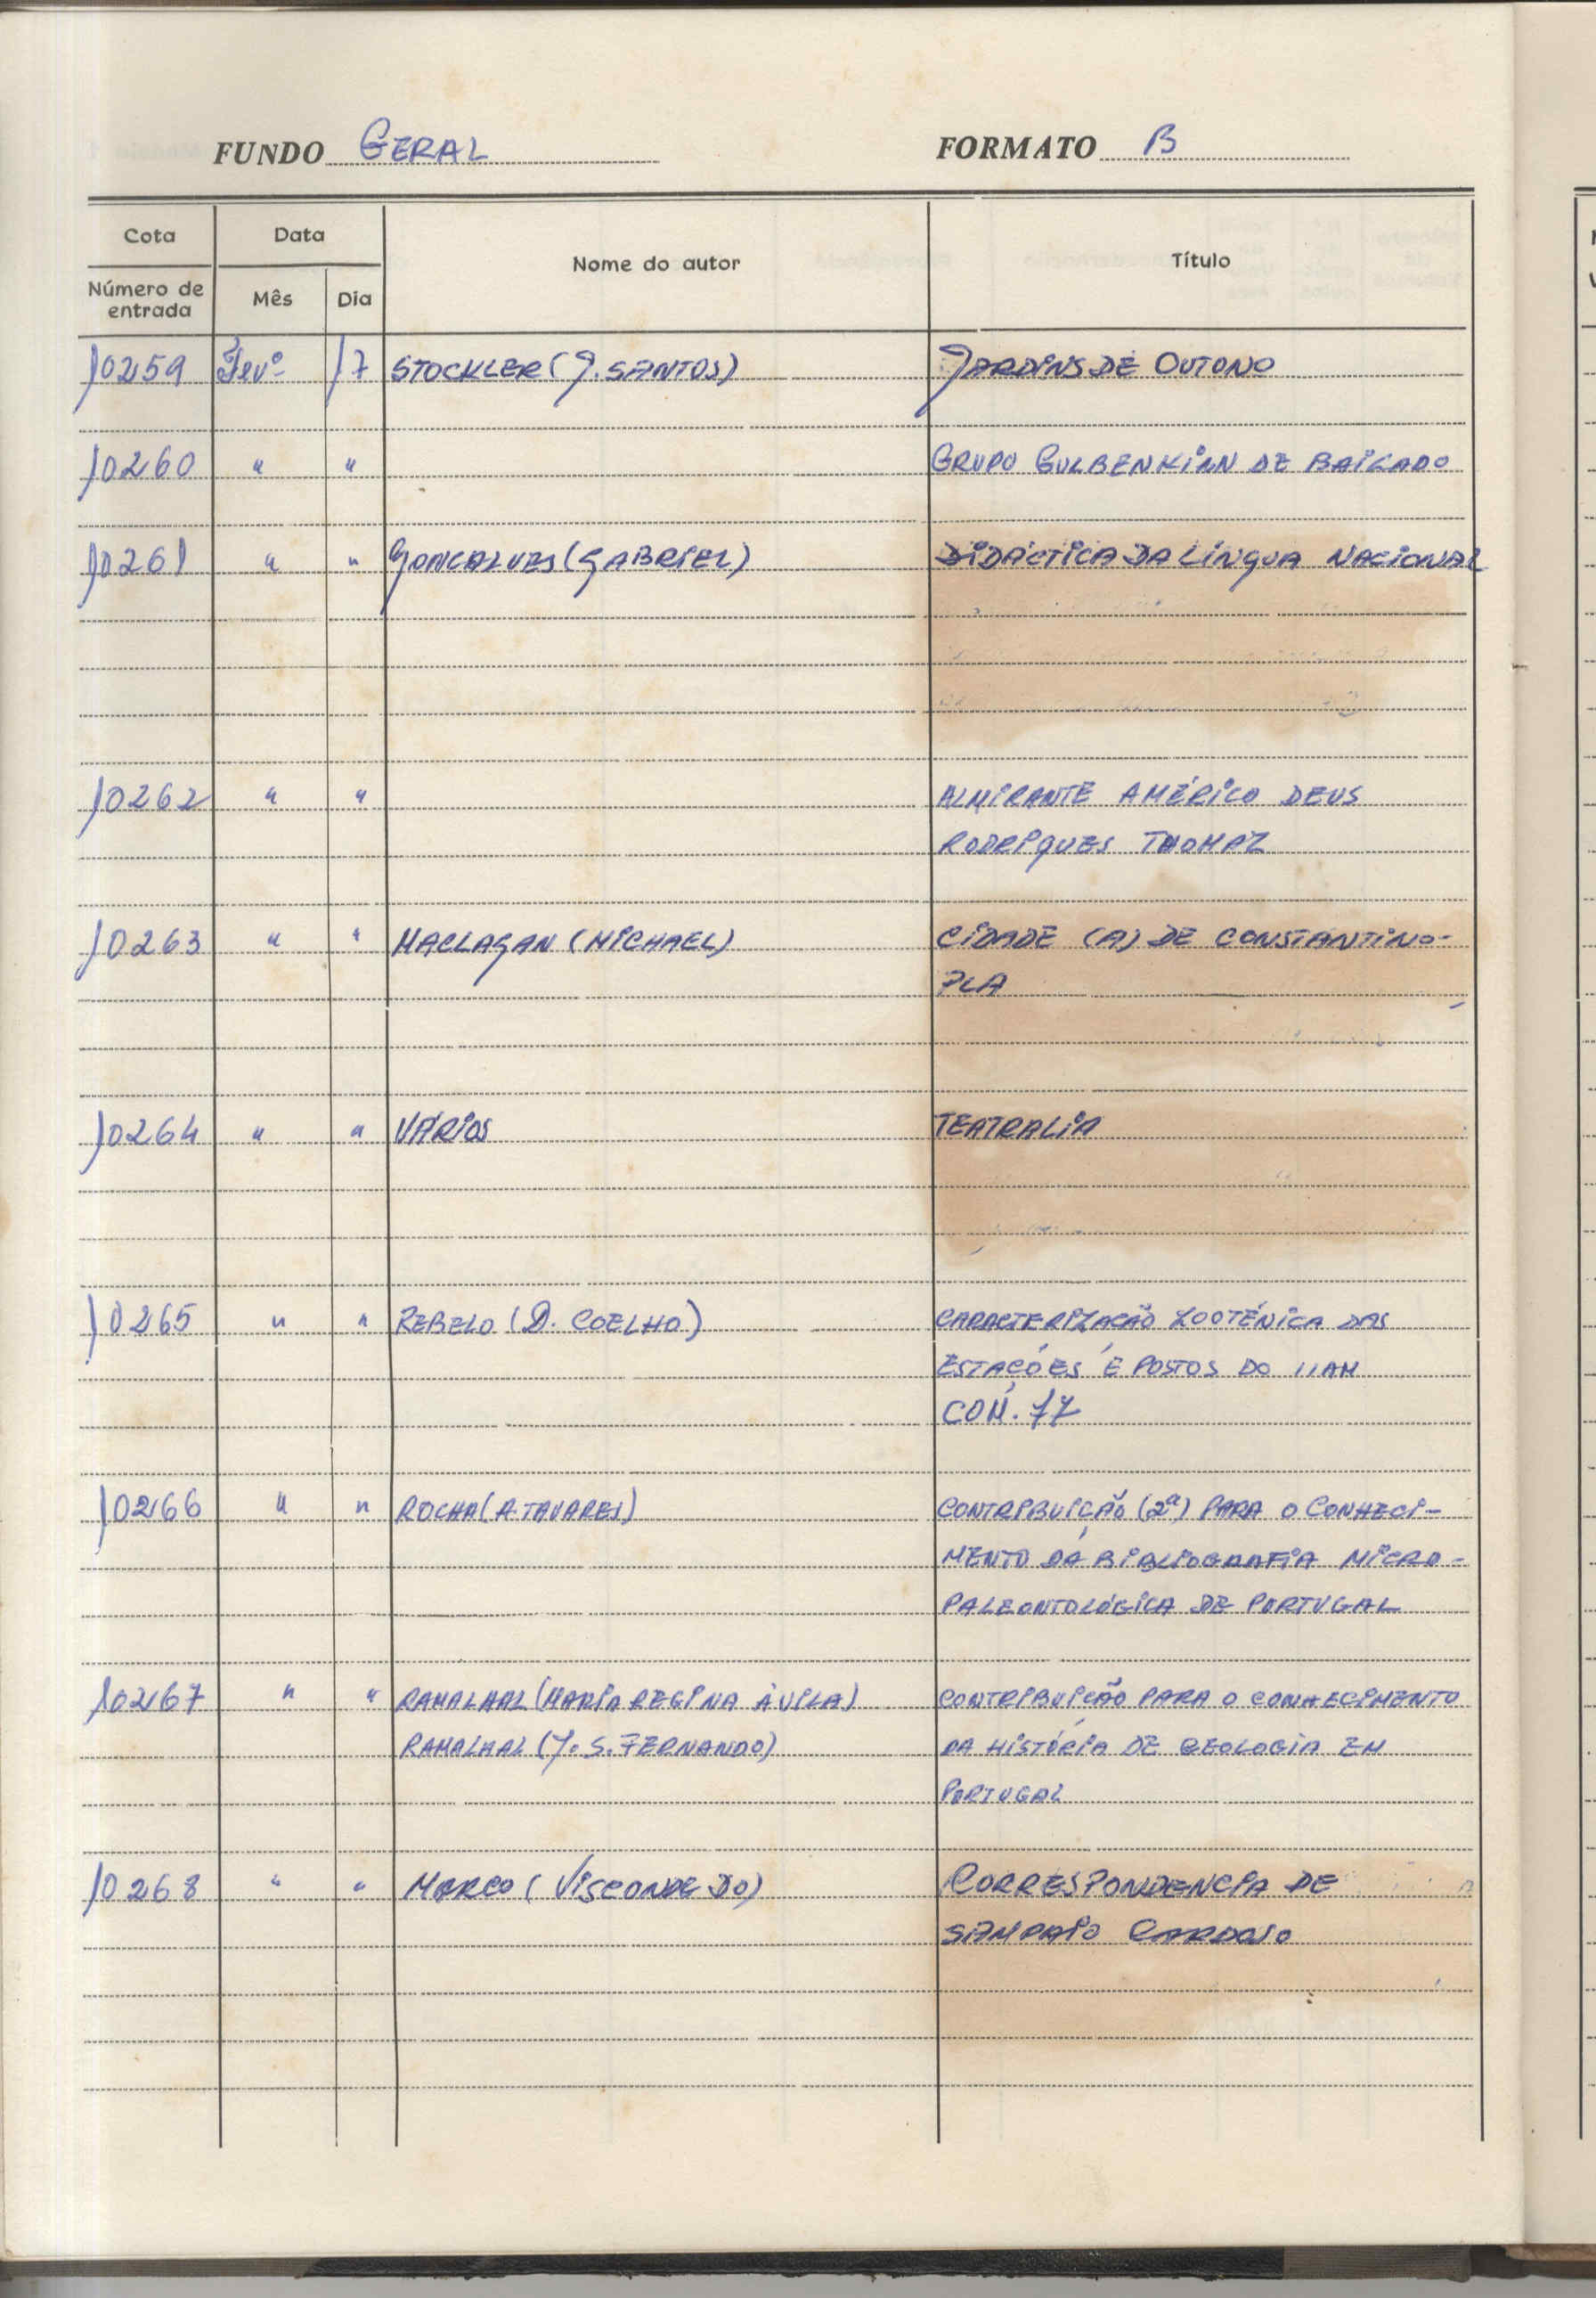 FUNDO GERAL FORMATO B
Cota Data Nome do autor Título
Número de entrada Mês Dia
10259 Fevº 17 STOCKLER (J. SANTOS) JARDINS DE OUTONO
10260 " " GRUPO GULBENKIAN DE BAILADO
10261 " " GONCALVES (GABRIEL) DIDÁCTICA DA LÍNGUA NACIONAL
10262 " " ALMIRANTE AMÉRICO DEUS
RODRIGUES THOMAZ
10263 " " MACLAGAN (MICHAEL) CIDADE (A) DE CONSTANTINO-
PLA
10264 " " VÁRIOS TEATRALIA
10265 " " REBELO (D. COELHO) CARACTERIZAÇÃO ZOOTÉNICA DAS
ESTAÇÓES E POSTOS DO IIAM
COM. 77
10266 " " ROCHA (A. TAVARES) CONTRIBUIÇÃO (2ª) PARA O CONHECI-
MENTO DA BIBLIOGRAFIA MICRO-
PALEONTOLÓGICA DE PORTUGAL
10267 " " RAMALHAL (MARIA REGINA ÁVILA) CONTRIBUIÇÃO PARA O CONHECIMENTO
RAMALHAL (J. S. FERNANDO) DA HISTÓRIA DE GEOLOGIA EM
PORTUGAL
10268 " " MARCO (VISCONDE DO) CORRESPONDENCIA DE
SAMPAIO CARDOSO